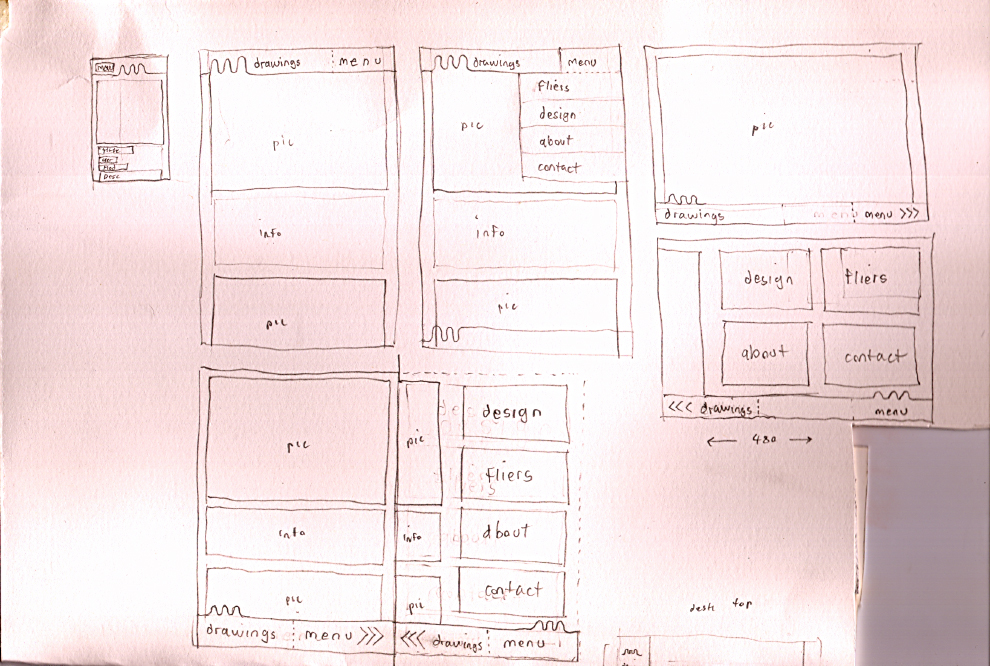 drawings menu
pic
info
pic
drawings menu
fliers
design
about
contact
pic
info
pic
pic
drawings menu menu >>>
design fliers
about contact
<<< drawings menu
← 480 →
pic
info
pic
drawings menu >>>
pic
info
pic
design
fliers
about
contact
<<< drawings menu
desk top